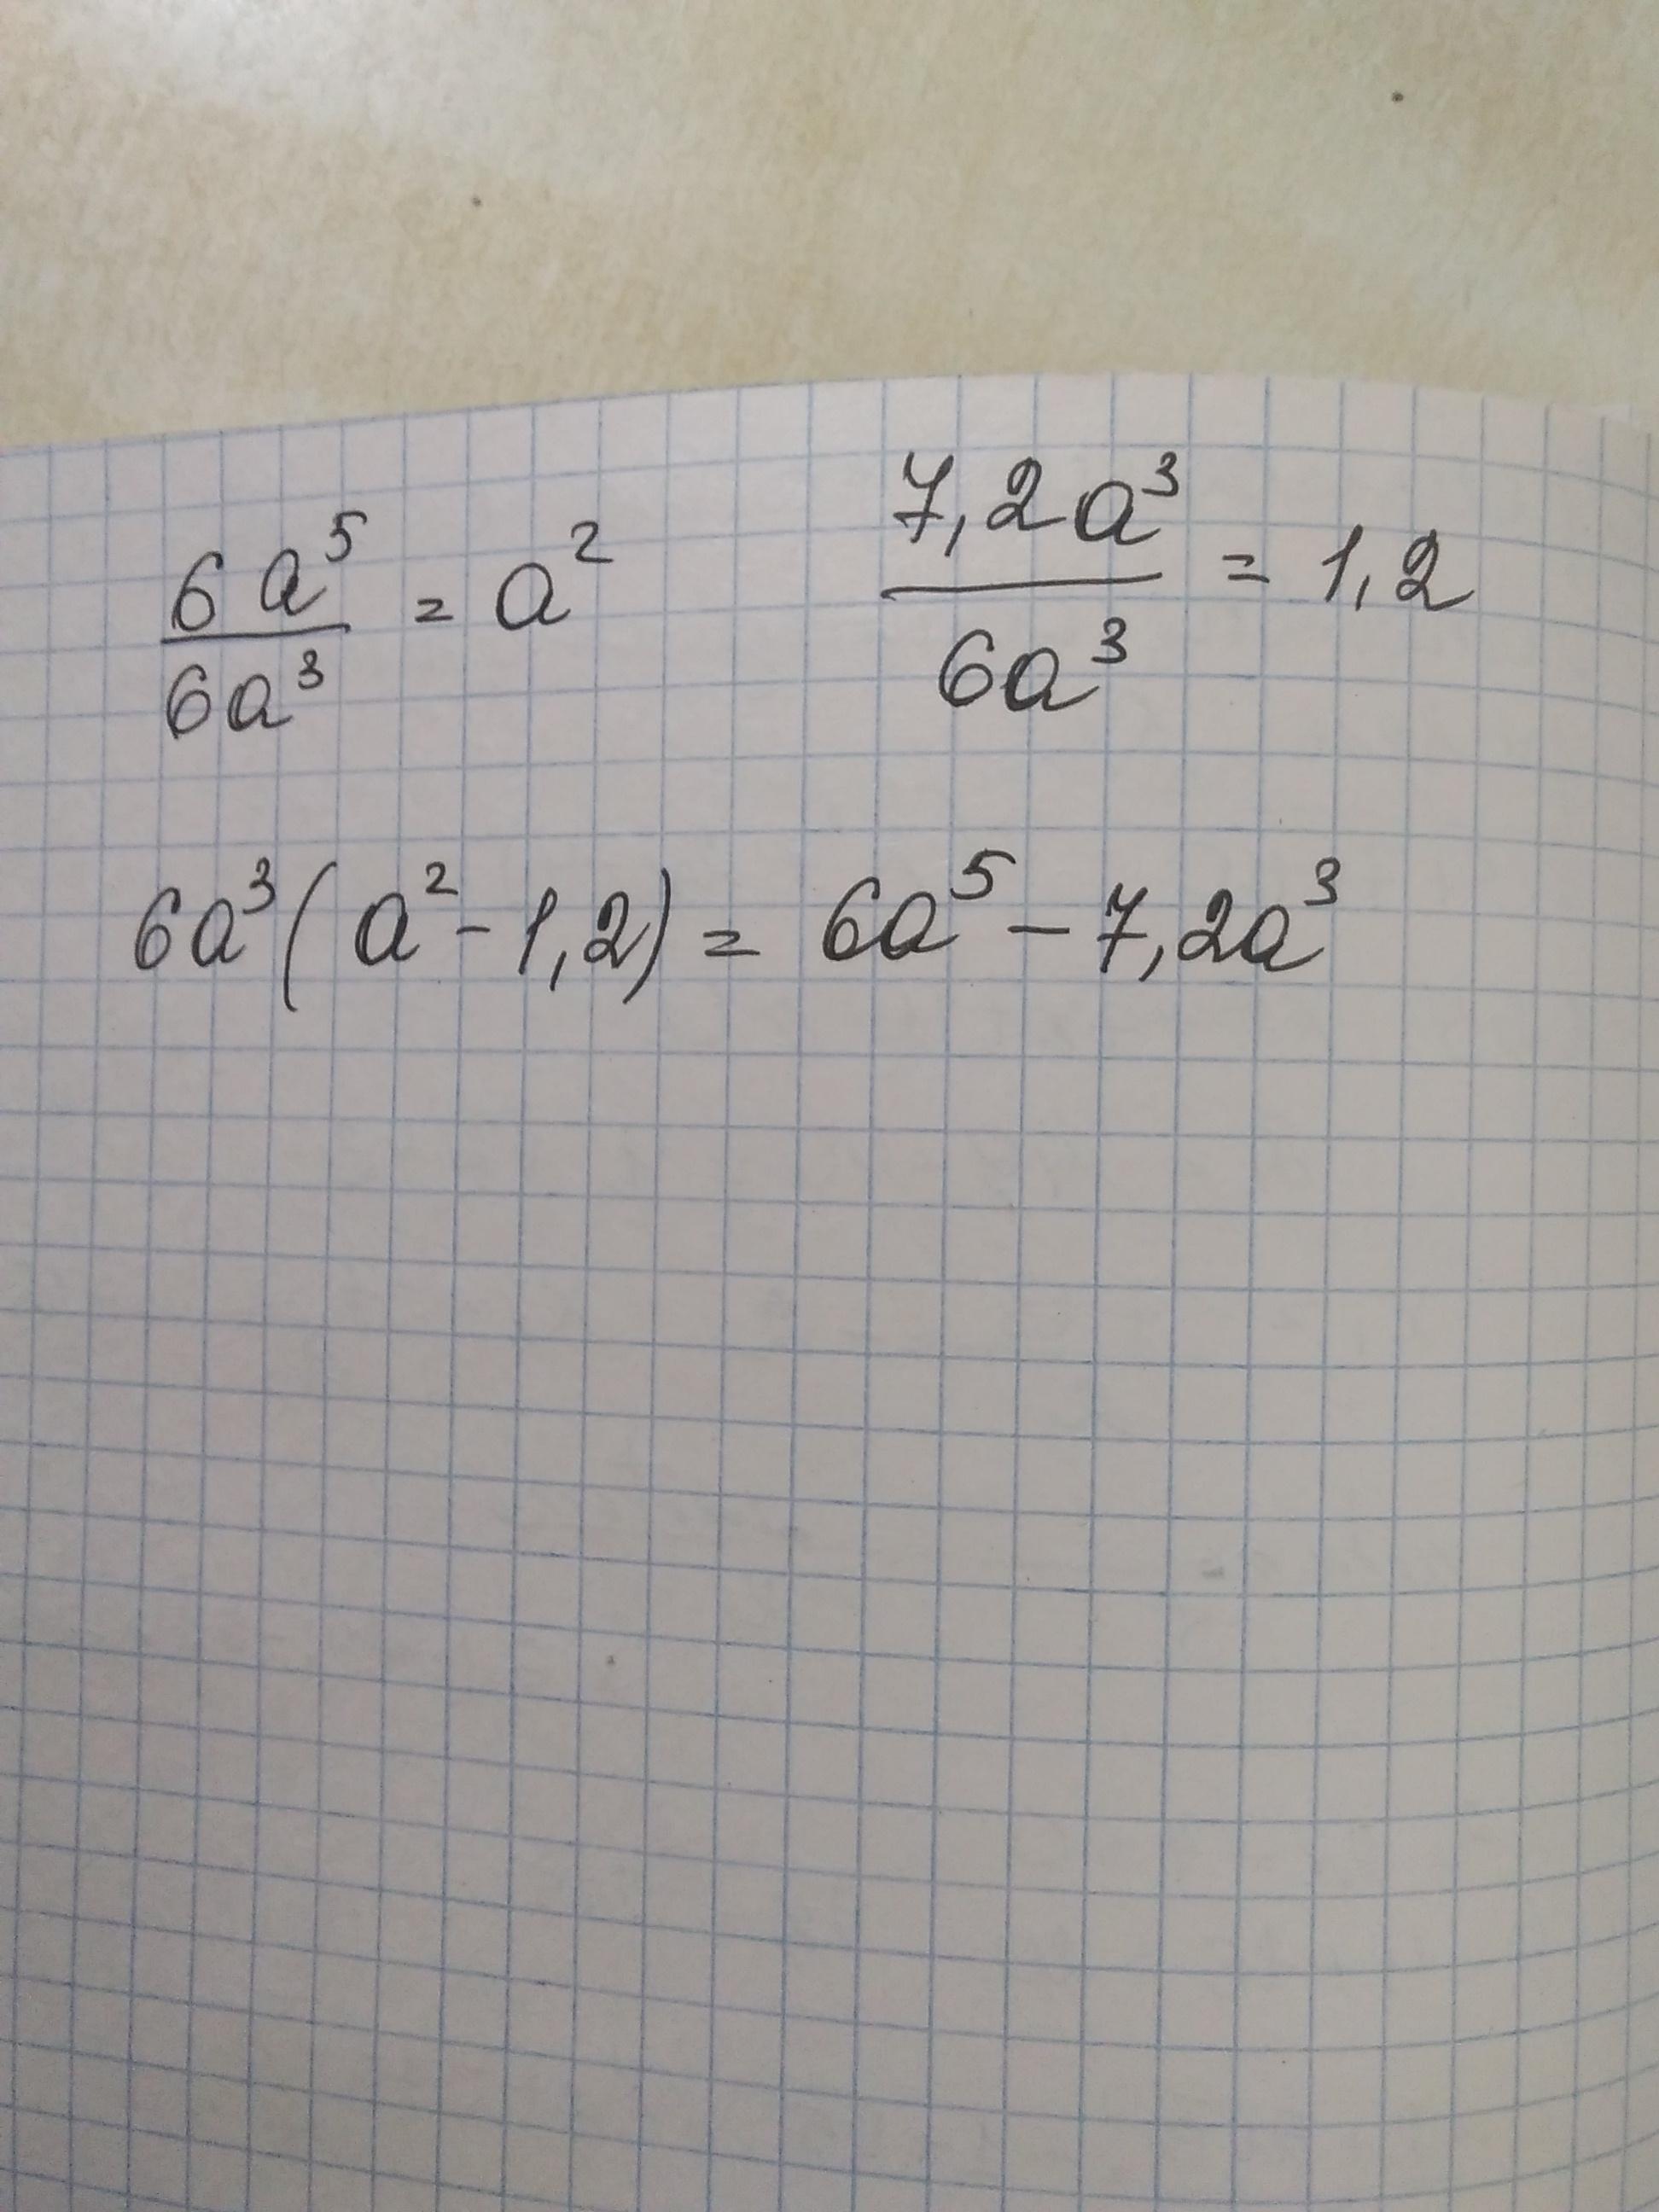 6a⁵/6a³ = a²   7,2a³/6a³ = 1,2
6a³(a² - 1,2) = 6a⁵ - 7,2a³